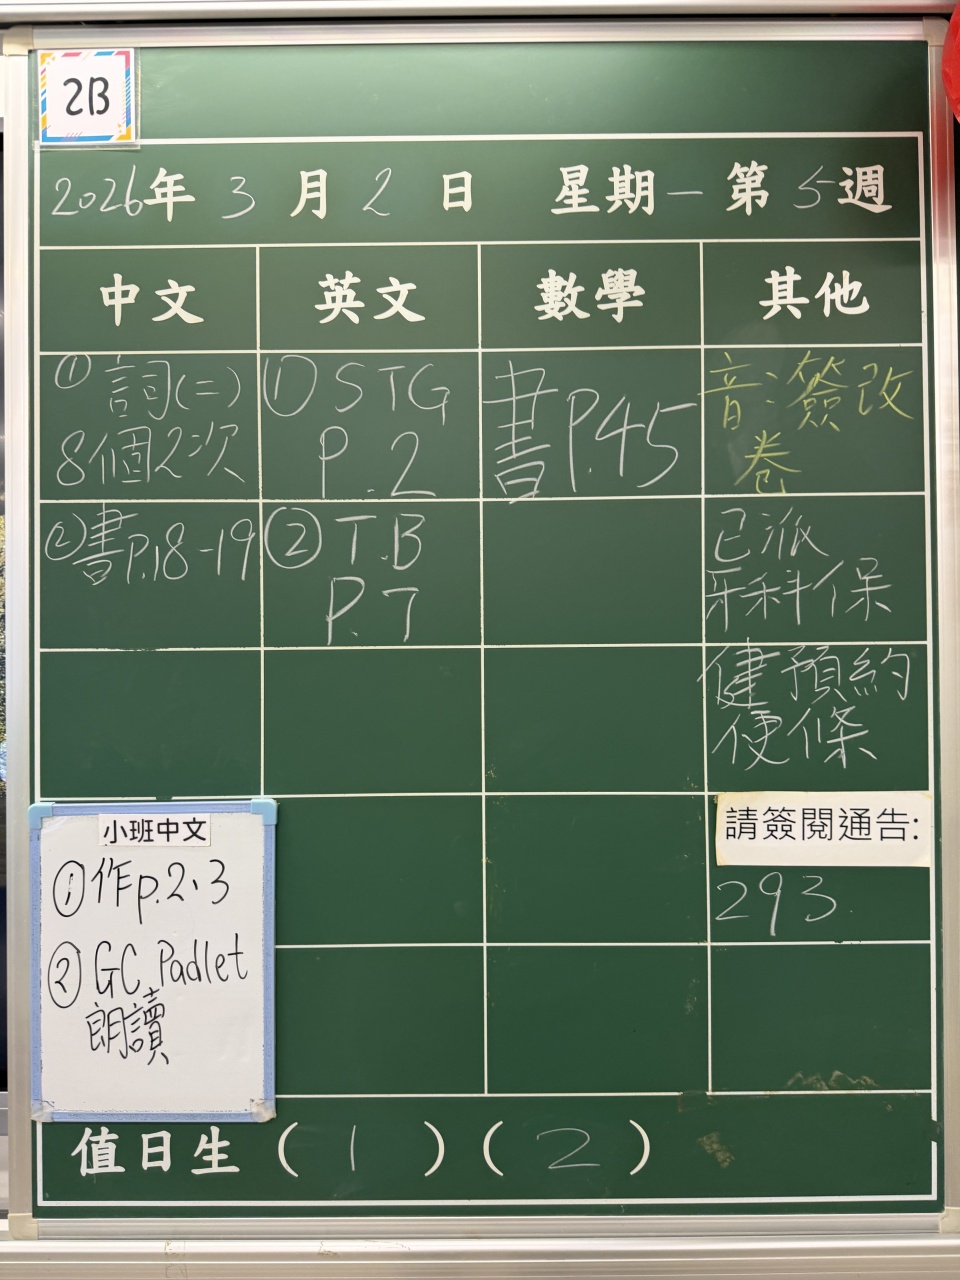 2B
2026年 3 月 2 日 星期一 第 5 週
中文 英文 數學 其他
① 詞(二)
8個2次
② 書P.18-19
① STG
P.2
② T.B
P.7
書P.45
音:簽改
卷
已派
牙科保
健預約
便條
請簽閱通告:
293
小班中文
① 作p.2、3
② GC Padlet
朗讀
值日生 ( 1 ) ( 2 )